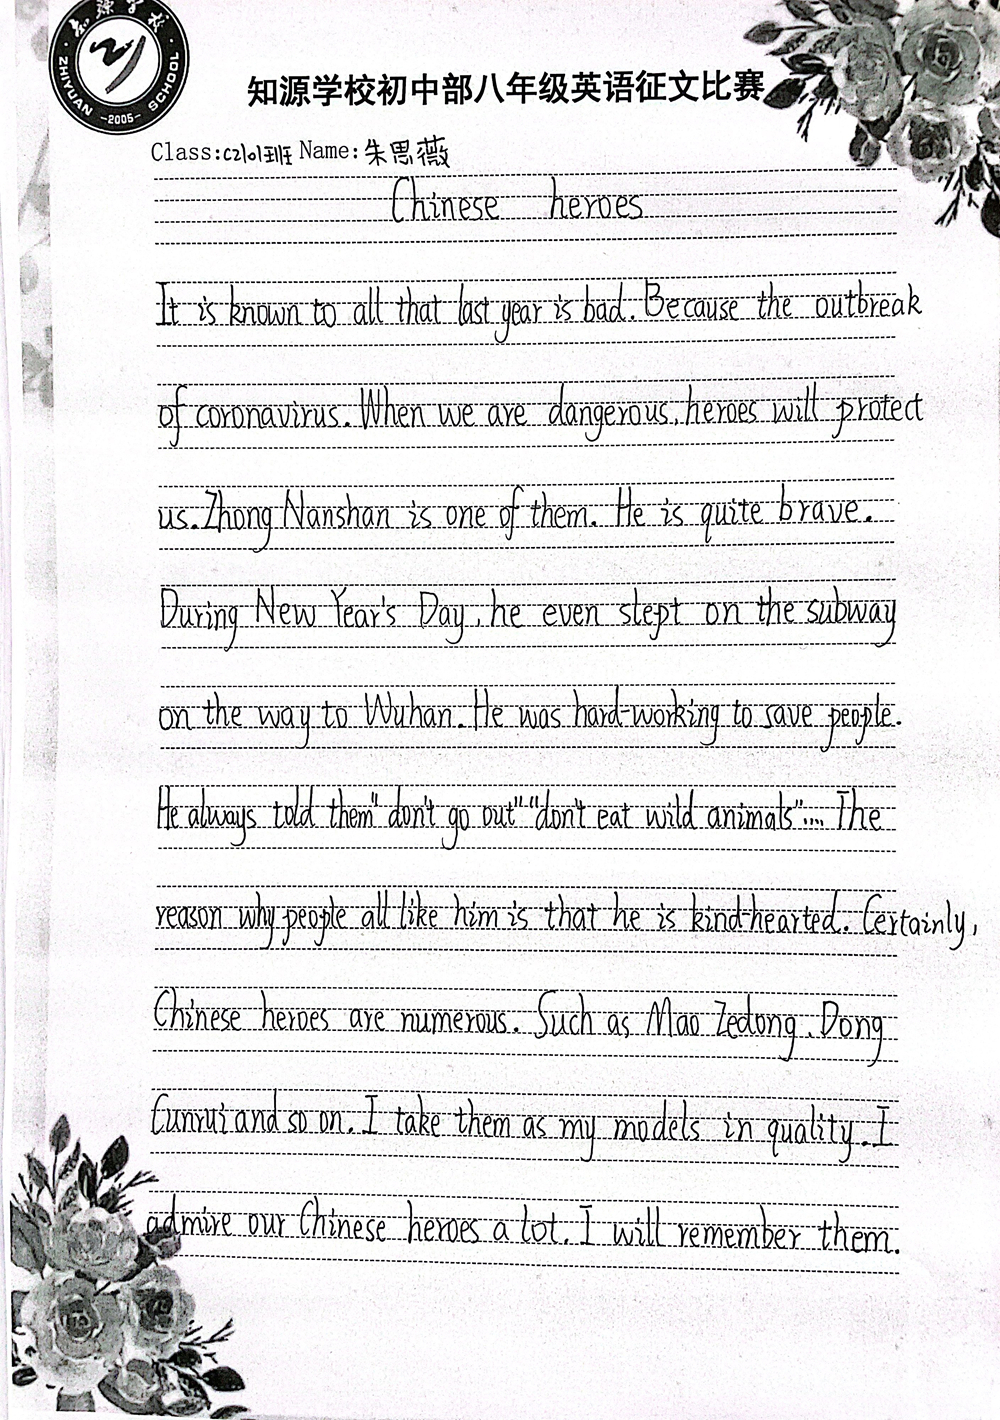 知源学校
ZHIYUAN SCHOOL
-2005-
知源学校初中部八年级英语征文比赛
Class:C2101班 Name:朱思薇
Chinese heroes
It is known to all that last year is bad. Because the outbreak
of coronavirus. When we are dangerous, heroes will protect
us. Zhong Nanshan is one of them. He is quite brave.
During New Year's Day, he even slept on the subway
on the way to Wuhan. He was hard-working to save people.
He always told them "don't go out" "don't eat wild animals".... The
reason why people all like him is that he is kind-hearted. Certainly,
Chinese heroes are numerous. Such as, Mao Zedong, Dong
Cunrui and so on. I take them as my models in quality. I
admire our Chinese heroes a lot. I will remember them.